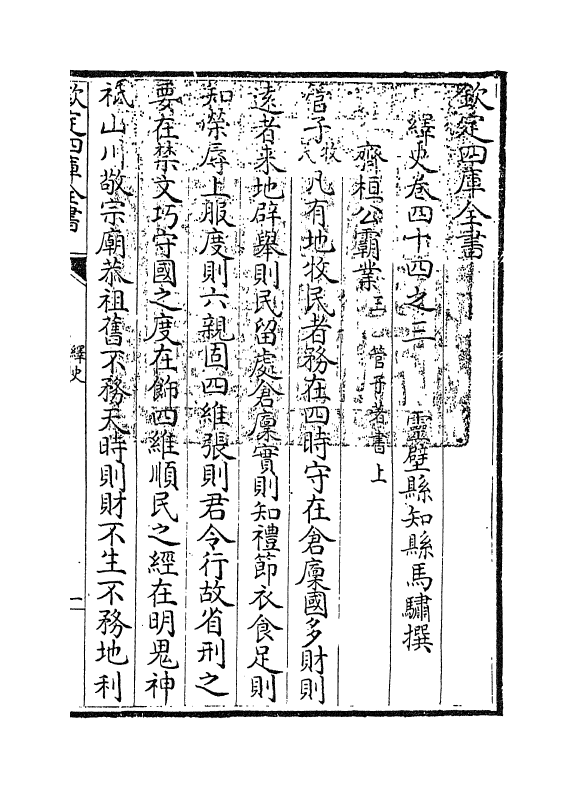 欽定四庫全書
繹史卷四十四之三 靈壁縣知縣馬驌撰
齊桓公霸業三 管子著書上
管子牧民凡有地牧民者務在四時守在倉廩國多財則
遠者来地辟舉則民留處倉廩實則知禮節衣食足則
知榮辱上服度則六親固四維張則君令行故省刑之
要在禁文巧守國之度在飾四維順民之經在明鬼神
祗山川敬宗廟恭祖舊不務天時則財不生不務地利
欽定四庫全書
繹史
一